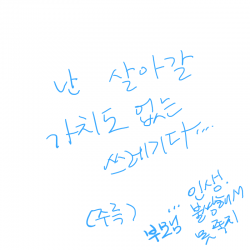 난 살아갈
가치도 없는
쓰레기다....
(주륵)
... 인생.
부모님 불쌍해서
못 죽지